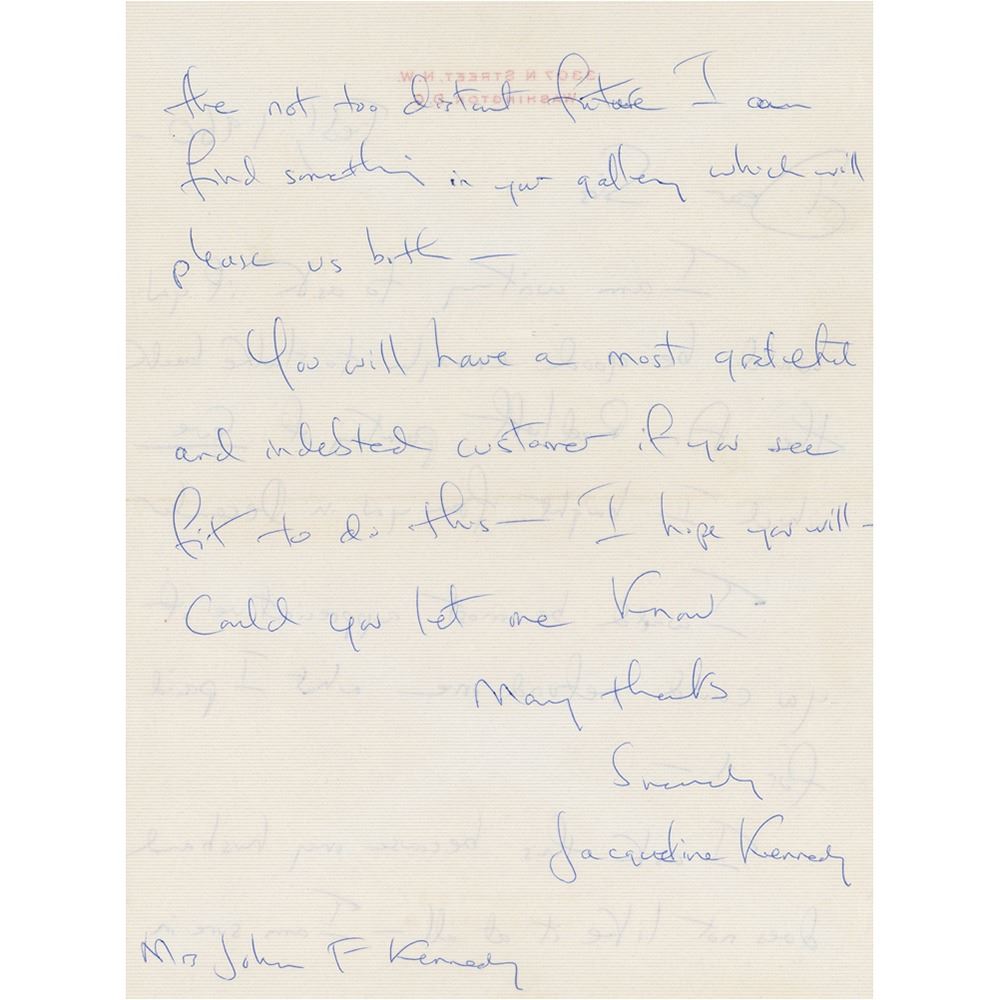 3307 N STREET, N.W.
WASHINGTON D.C.
the not too distant future I can
find something in your gallery which will
please us both —
You will have a most grateful
and indebted customer if you see
fit to do this — I hope you will —
Could you let me know -
Many thanks
Sincerely
Jacqueline Kennedy
Mrs John F Kennedy